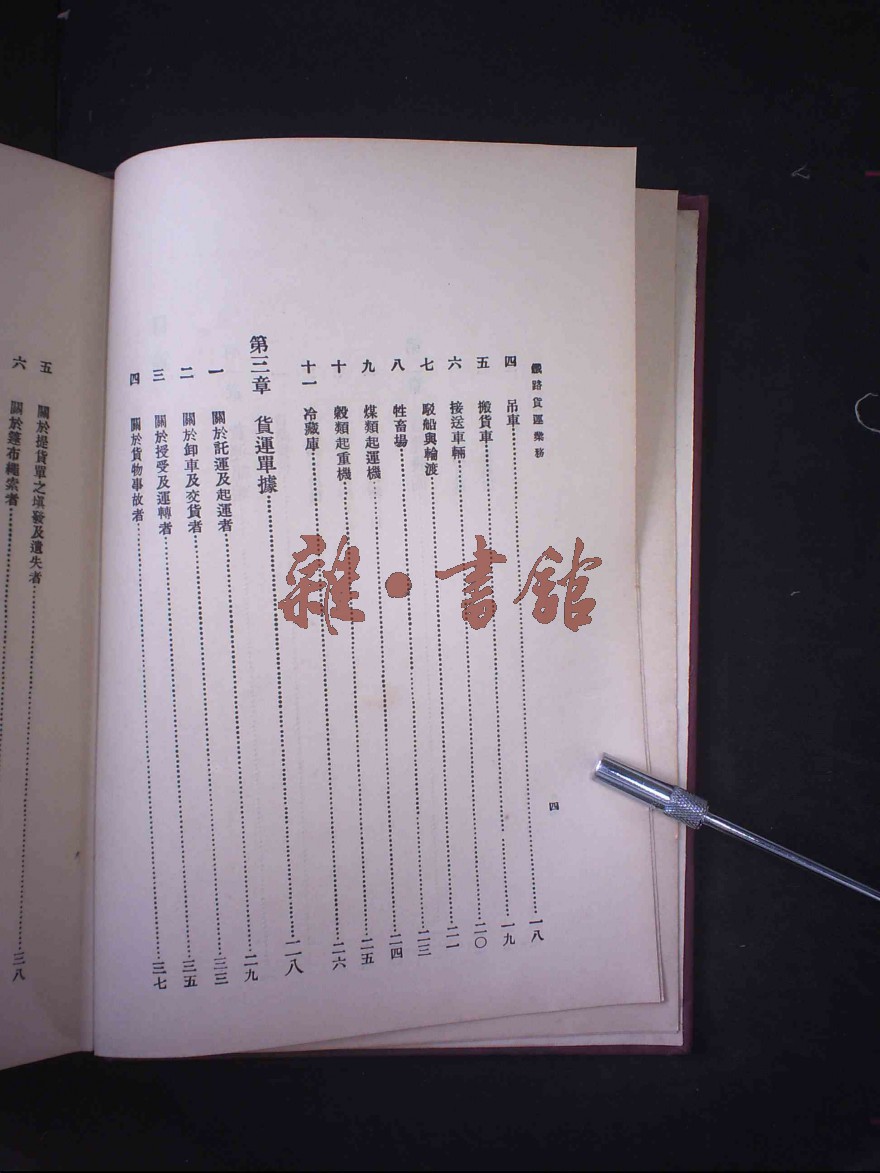 鐵路貨運業務
四
四 吊車……一八
五 搬貨車……一九
六 接送車輛……二〇
七 駁船與輪渡……二一
八 牲畜場……二三
九 煤類起運機……二四
十 穀類起重機……二五
十一 冷藏庫……二六
第三章 貨運單據……二八
一 關於託運及起運者……二九
二 關於卸車及交貨者……三三
三 關於授受及運轉者……三五
四 關於貨物事故者……三七
五 關於提貨單之填發及遺失者……三八
六 關於篷布繩索者……
雜·書館